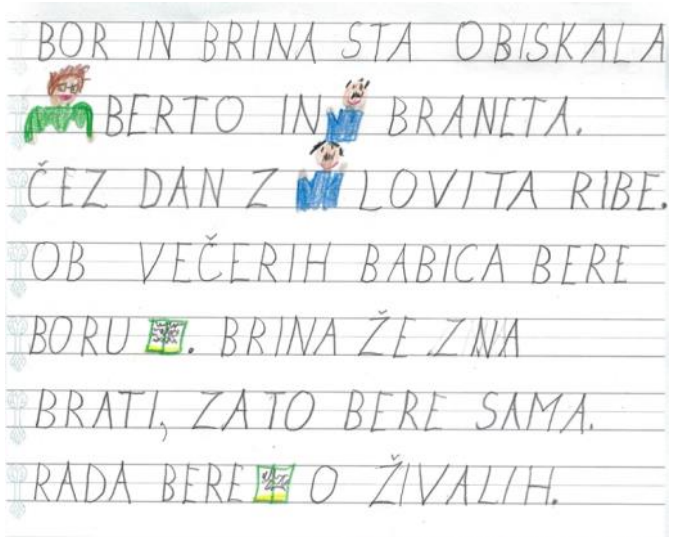 BOR IN BRINA STA OBISKALA
BERTO IN BRANETA.
ČEZ DAN Z LOVITA RIBE.
OB VEČERIH BABICA BERE
BORU . BRINA ŽE ZNA
BRATI, ZATO BERE SAMA.
RADA BERE O ŽIVALIH.